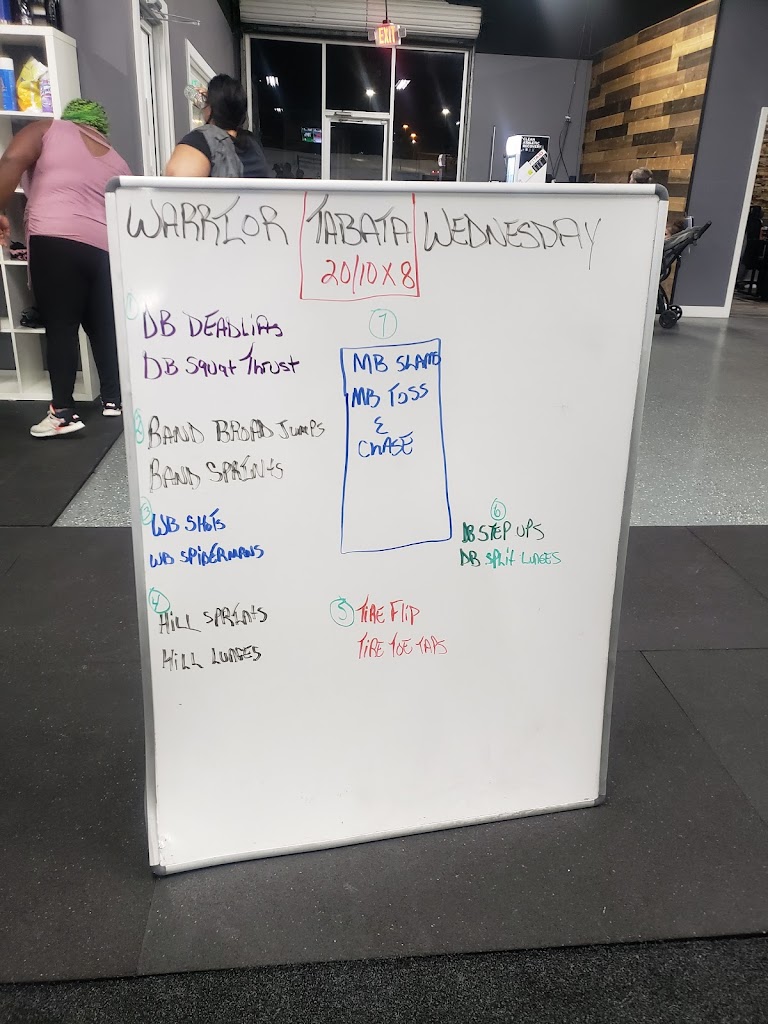 EXIT
WARRIOR TABATA WEDNESDAY
20/10 X 8
1
DB DEADLifts
DB Squat Thrust
2
BAND BROAD Jumps
BAND SPRINTS
3
WB SHOTS
WB SPIDERMANS
4
Hill SPRINTS
Hill LUNGES
7
MB SLAMS
MB TOSS
&
CHASE
5 TIRE FLIP
TIRE TOE TAPS
6
DB STEP UPS
DB SPLIT LUNGES